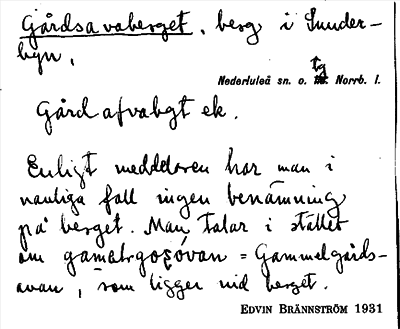 Gårdsavaberget, berg i Sunder-
byn,
Nederluleå sn. o. tg Norrb. l.
Gård afvabgt ek.
Enligt meddelaren har man i
vanliga fall ingen benämning
på berget. Man talar i stället
om = Gammelgårds-
avan, som ligger vid berget.
EDVIN BRÄNNSTRÖM 1931